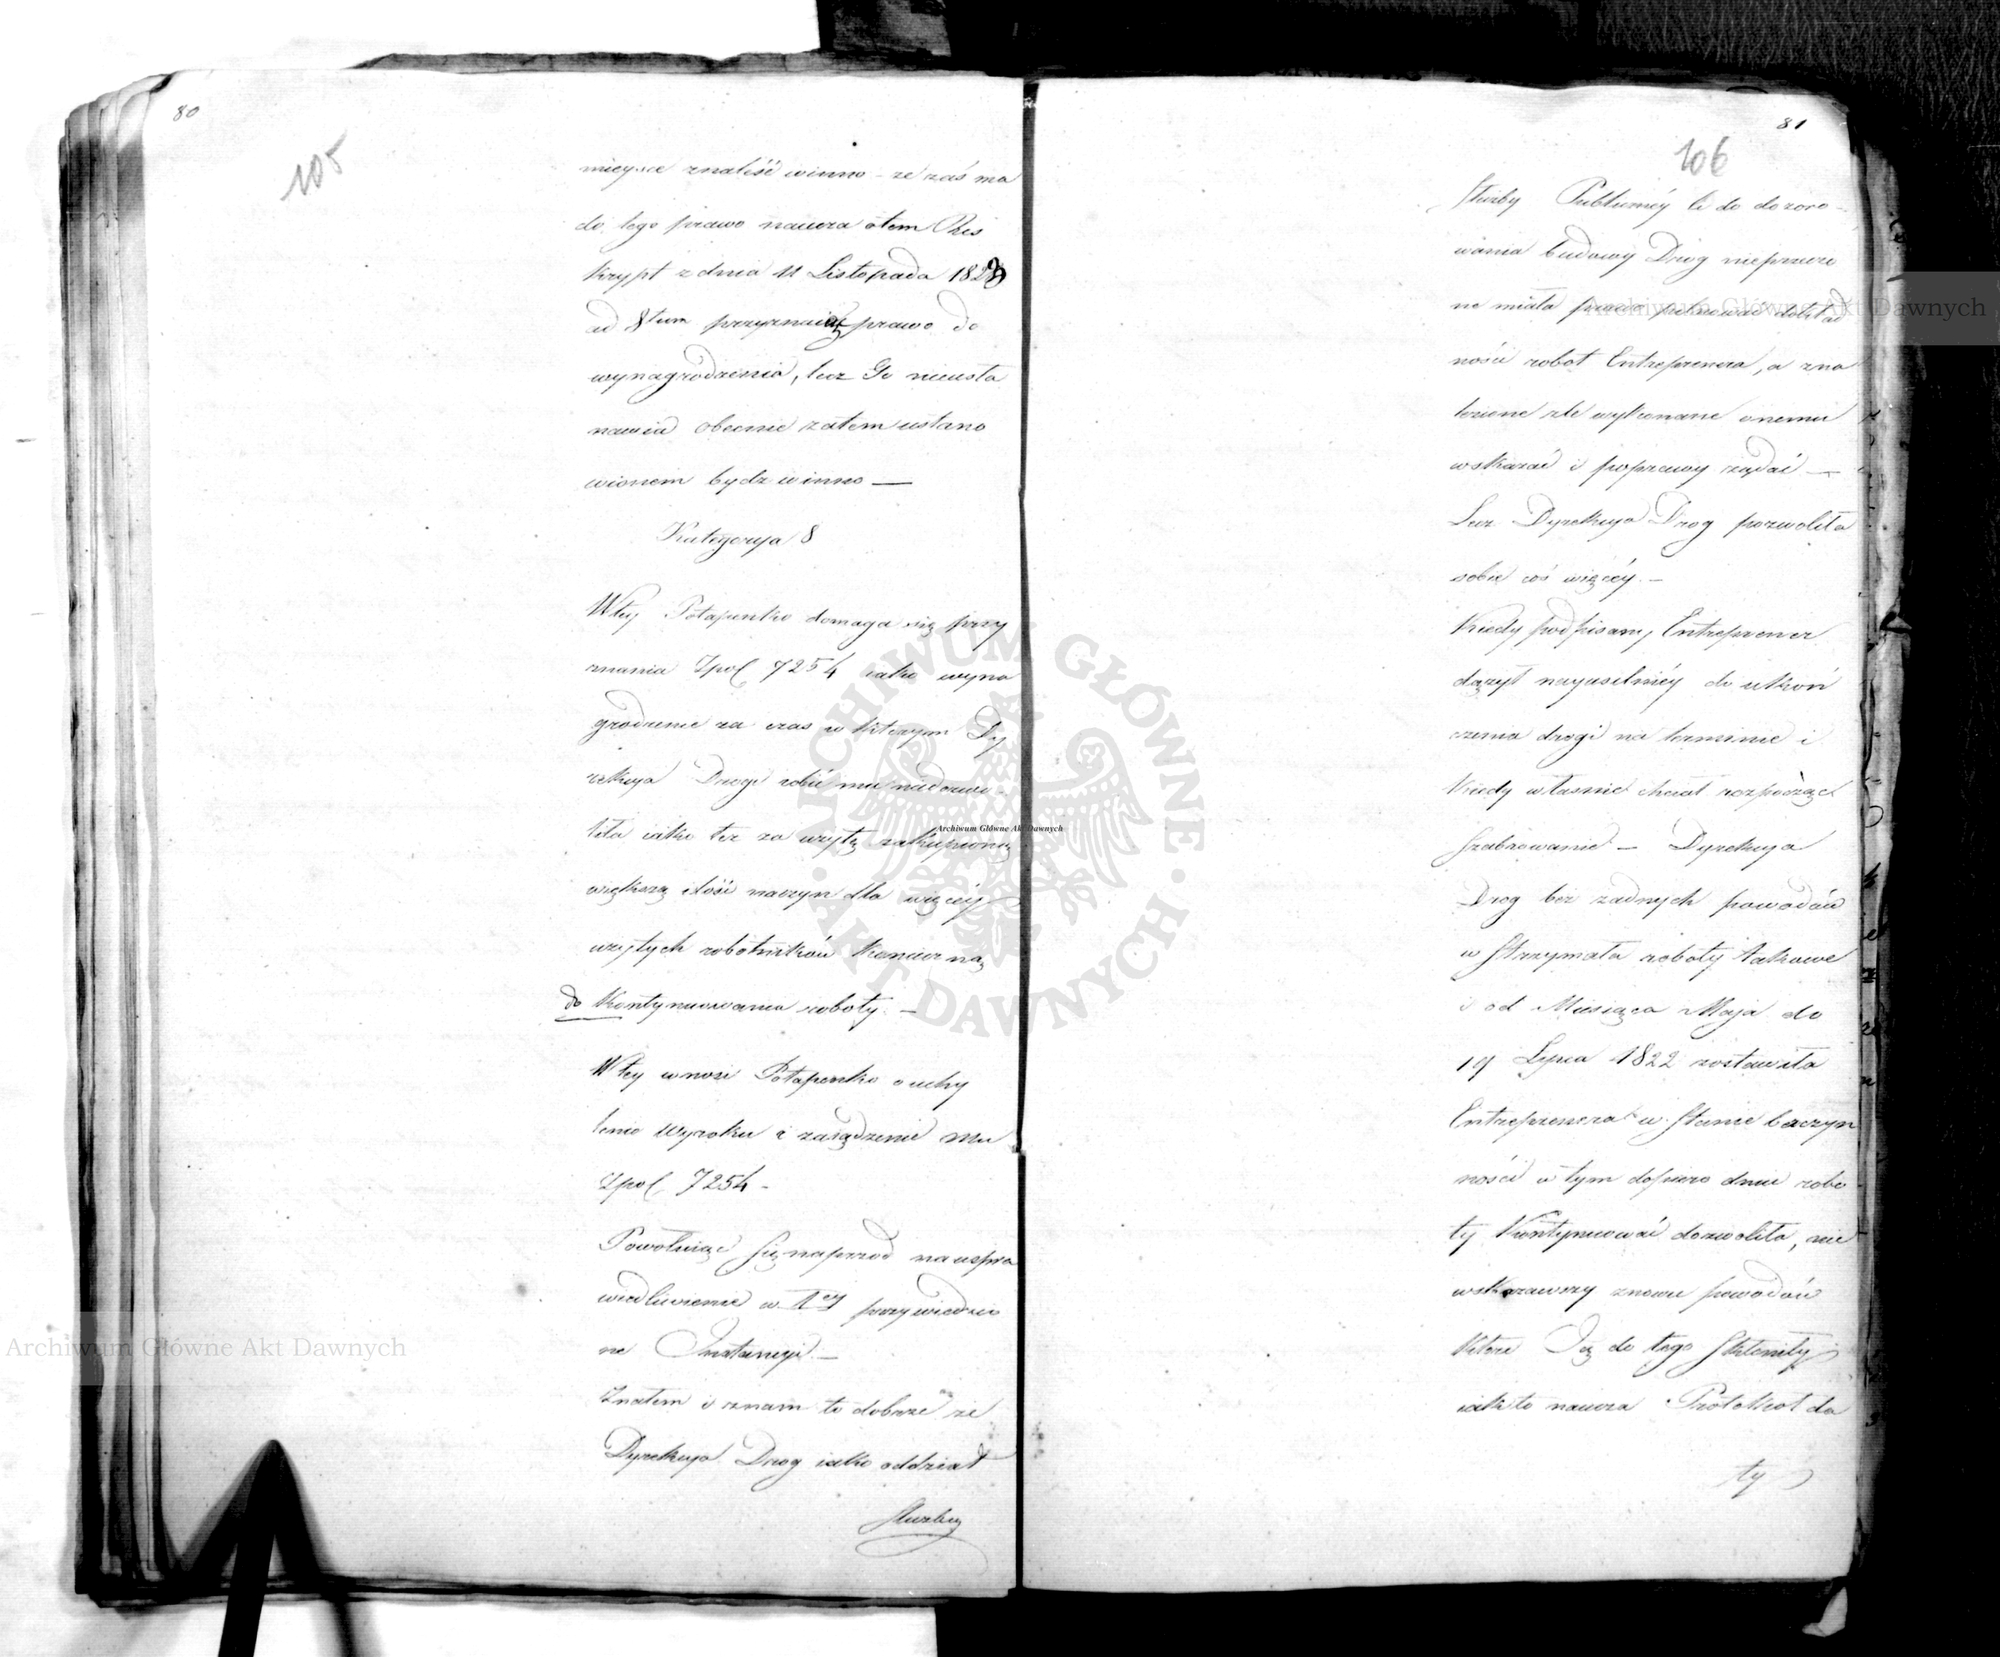 80
105
mieysce znaliść winno – że zaś ma
do tego prawo naucza o tem Res
krypt z dnia 11 Listopada 1828
ad 8tum przyznaiąc prawo do
wynagrodzenia, lecz Go nieusta
nawia obecnie zatem ustano
wionem bydz winno —
Kategorya 8
Wtey Potapenko domaga się przy
znania Zpol 7254 iako wyna
grodzenie za czas w którym Dy
rekcya Drogi robić mu niedozwo-
liła iako też za użytą zakupioną
większą ilość naczyn dla więcéy
użytych robotników konieczną
do kontynuowania roboty. –
Wtey wnosi Potapenko o uchy
lenie Wyroku i zasądzenie mu
Zpol 7254 –
Powołuiąc się naprzod na uspra
wiedliwienie w 1ey przywiedzio
ne Instancyi. –
Znałem i znam to dobrze że
Dyrekcya Drog iako oddział
Służby
81
106
Służby Publicznéy li do dozoro-
wania budowy Drog nieprzecze
ne miała prawo pilnować dokład
ności robot Entreprenera, a zna
lezione źle wykonane onemu
wskazać i poprawy żądać —
Lecz Dyrekcya Drog pozwoliła
sobie coś więcéy. –
Kiedy podpisany Entreprener
dążył nayusilniéy do ukoń
czenia drogi na terminie i
kiedy własnie chciał rozpocząć
szabrowanie – Dyrekcya
Drog bez żadnych powodów
wstrzymała roboty takowe
i od Miesiąca Maja do
19 Lipca 1822 zostawiła
Entreprenera w stanie bezczyn
ności w tym dopiero dniu robo
ty kontynuować dozwoliła, nie
wskazawszy znowu powodów
które Ją do tego skłoniły
iak to naucza Protokoł da
ty
Archiwum Główne Akt Dawnych
ARCHIWUM GŁÓWNE · AKT DAWNYCH ·
Archiwum Główne Akt Dawnych
Archiwum Główne Akt Dawnych